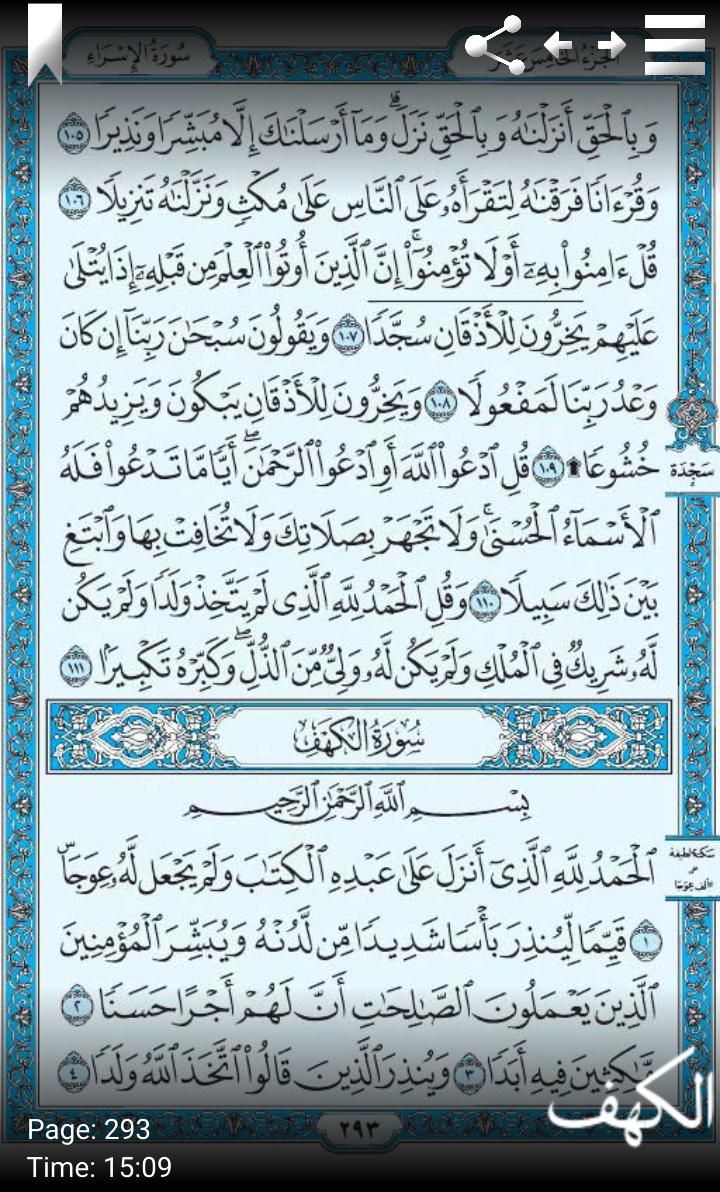 سُورَةُ الإِسْرَاءِ
الجُزْءُ الخَامِسَ عَشَرَ
وَبِٱلْحَقِّ أَنزَلْنَٰهُ وَبِٱلْحَقِّ نَزَلَ ۗ وَمَآ أَرْسَلْنَٰكَ إِلَّا مُبَشِّرًا وَنَذِيرًا ١٠٥
وَقُرْءَانًا فَرَقْنَٰهُ لِتَقْرَأَهُۥ عَلَى ٱلنَّاسِ عَلَىٰ مُكْثٍ وَنَزَّلْنَٰهُ تَنزِيلًا ١٠٦
قُلْ ءَامِنُوا۟ بِهِۦٓ أَوْ لَا تُؤْمِنُوٓا۟ ۚ إِنَّ ٱلَّذِينَ أُوتُوا۟ ٱلْعِلْمَ مِن قَبْلِهِۦٓ إِذَا يُتْلَىٰ
عَلَيْهِمْ يَخِرُّونَ لِلْأَذْقَانِ سُجَّدًا ١٠٧ وَيَقُولُونَ سُبْحَٰنَ رَبِّنَآ إِن كَانَ
وَعْدُ رَبِّنَا لَمَفْعُولًا ١٠٨ وَيَخِرُّونَ لِلْأَذْقَانِ يَبْكُونَ وَيَزِيدُهُمْ
خُشُوعًا ١٠٩ قُلِ ٱدْعُوا۟ ٱللَّهَ أَوِ ٱدْعُوا۟ ٱلرَّحْمَٰنَ ۖ أَيًّا مَّا تَدْعُوا۟ فَلَهُ
سَجْدَة
ٱلْأَسْمَآءُ ٱلْحُسْنَىٰ ۚ وَلَا تَجْهَرْ بِصَلَاتِكَ وَلَا تُخَافِتْ بِهَا وَٱبْتَغِ
بَيْنَ ذَٰلِكَ سَبِيلًا ١١٠ وَقُلِ ٱلْحَمْدُ لِلَّهِ ٱلَّذِى لَمْ يَتَّخِذْ وَلَدًا وَلَمْ يَكُن
لَّهُۥ شَرِيكٌ فِى ٱلْمُلْكِ وَلَمْ يَكُن لَّهُۥ وَلِىٌّ مِّنَ ٱلذُّلِّ ۖ وَكَبِّرْهُ تَكْبِيرًۢا ١١١
سُورَةُ الكَهْفِ
بِسْمِ ٱللَّهِ ٱلرَّحْمَٰنِ ٱلرَّحِيمِ
ٱلْحَمْدُ لِلَّهِ ٱلَّذِىٓ أَنزَلَ عَلَىٰ عَبْدِهِ ٱلْكِتَٰبَ وَلَمْ يَجْعَل لَّهُۥ عِوَجَاۜ
سكتة لطيفة
على
ألف عِوَجَا
١ قَيِّمًا لِّيُنذِرَ بَأْسًا شَدِيدًا مِّن لَّدُنْهُ وَيُبَشِّرَ ٱلْمُؤْمِنِينَ
ٱلَّذِينَ يَعْمَلُونَ ٱلصَّٰلِحَٰتِ أَنَّ لَهُمْ أَجْرًا حَسَنًا ٢
مَّٰكِثِينَ فِيهِ أَبَدًا ٣ وَيُنذِرَ ٱلَّذِينَ قَالُوا۟ ٱتَّخَذَ ٱللَّهُ وَلَدًا ٤
الكهف
٢٩٣
Page: 293
Time: 15:09